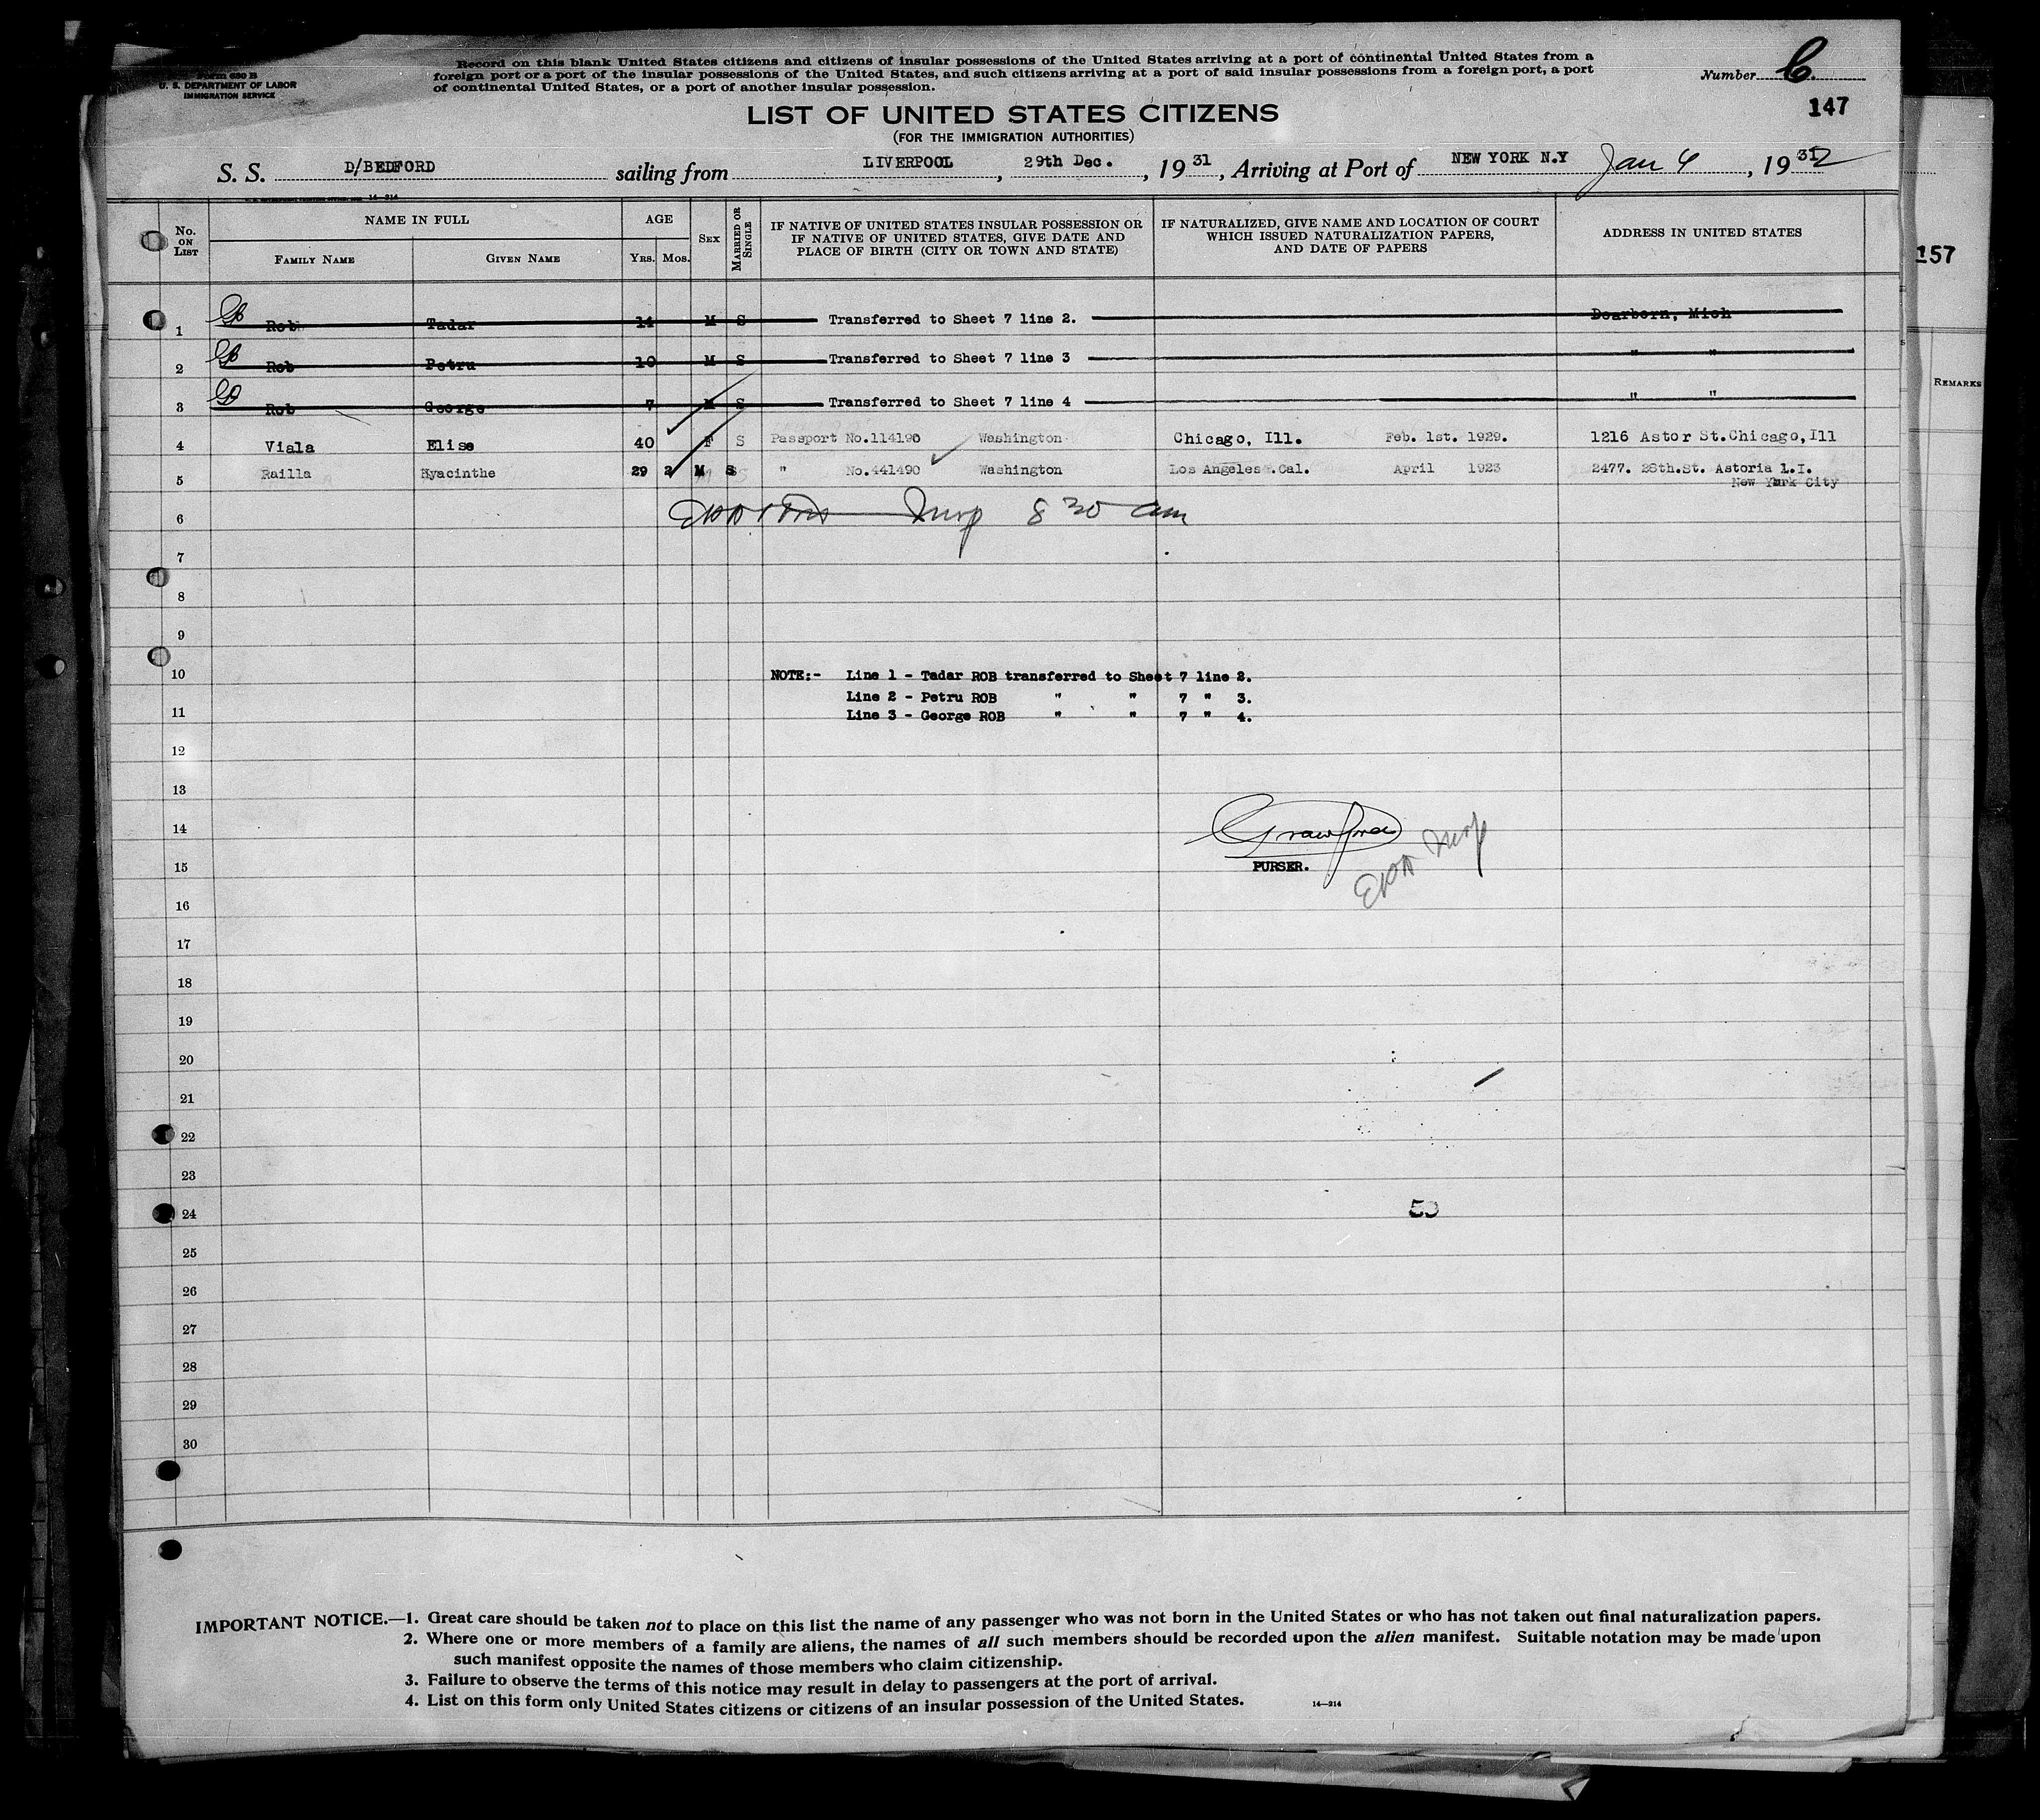 Form 630 B
U. S. DEPARTMENT OF LABOR
IMMIGRATION SERVICE
Record on this blank United States citizens and citizens of insular possessions of the United States arriving at a port of continental United States from a
foreign port or a port of the insular possessions of the United States, and such citizens arriving at a port of said insular possessions from a foreign port, a port
of continental United States, or a port of another insular possession.
Number
147
LIST OF UNITED STATES CITIZENS
(FOR THE IMMIGRATION AUTHORITIES)
S. S. D/BEDFORD sailing from LIVERPOOL, 29th Dec., 1931, Arriving at Port of NEW YORK N.Y Jan 4, 1932
14-214
No. ON LIST
NAME IN FULL
FAMILY NAME GIVEN NAME
AGE
YRS. MOS.
SEX
MARRIED OR SINGLE
IF NATIVE OF UNITED STATES INSULAR POSSESSION OR
IF NATIVE OF UNITED STATES, GIVE DATE AND
PLACE OF BIRTH (CITY OR TOWN AND STATE)
IF NATURALIZED, GIVE NAME AND LOCATION OF COURT
WHICH ISSUED NATURALIZATION PAPERS,
AND DATE OF PAPERS
ADDRESS IN UNITED STATES
157
REMARKS
1 Rob Tadar 14 M S Transferred to Sheet 7 line 2. Dearborn, Mich
2 Rob Petru 10 M S Transferred to Sheet 7 line 3 " "
3 Rob George 7 M S Transferred to Sheet 7 line 4 " "
4 Viala Elise 40 F S Passport No.114190 Washington Chicago, Ill. Feb. 1st. 1929. 1216 Astor St.Chicago,Ill
5 Railla Hyacinthe 29 2 M S " No.441490 Washington Los Angeles .Cal. April 1923 2477. 28th.St. Astoria L.I.
New York City
6 Insp 8 30 am
7
8
9
10 NOTE:- Line 1 - Tadar ROB transferred to Sheet 7 line 2.
Line 2 - Petru ROB " " 7 " 3.
11 Line 3 - George ROB " " 7 " 4.
12
13
14 Crawford
15 PURSER.
Insp
16
17
18
19
20
21
22
23
24
25
26
27
28
29
30
IMPORTANT NOTICE.—1. Great care should be taken not to place on this list the name of any passenger who was not born in the United States or who has not taken out final naturalization papers.
2. Where one or more members of a family are aliens, the names of all such members should be recorded upon the alien manifest. Suitable notation may be made upon
such manifest opposite the names of those members who claim citizenship.
3. Failure to observe the terms of this notice may result in delay to passengers at the port of arrival.
4. List on this form only United States citizens or citizens of an insular possession of the United States.
14—214